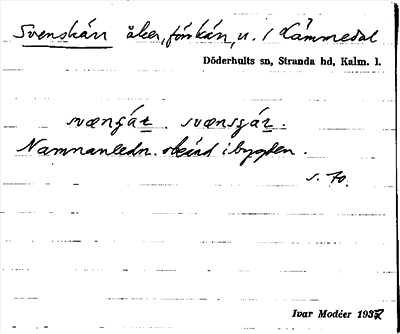 Svenskärr åker, förkän, u. / Lämmedal
Döderhults sn, Stranda hd, Kalm. l.
svænʂár. svænsʂár.
Namnanledn. okänd i bygden.
s. 70.
Ivar Modéer 1937